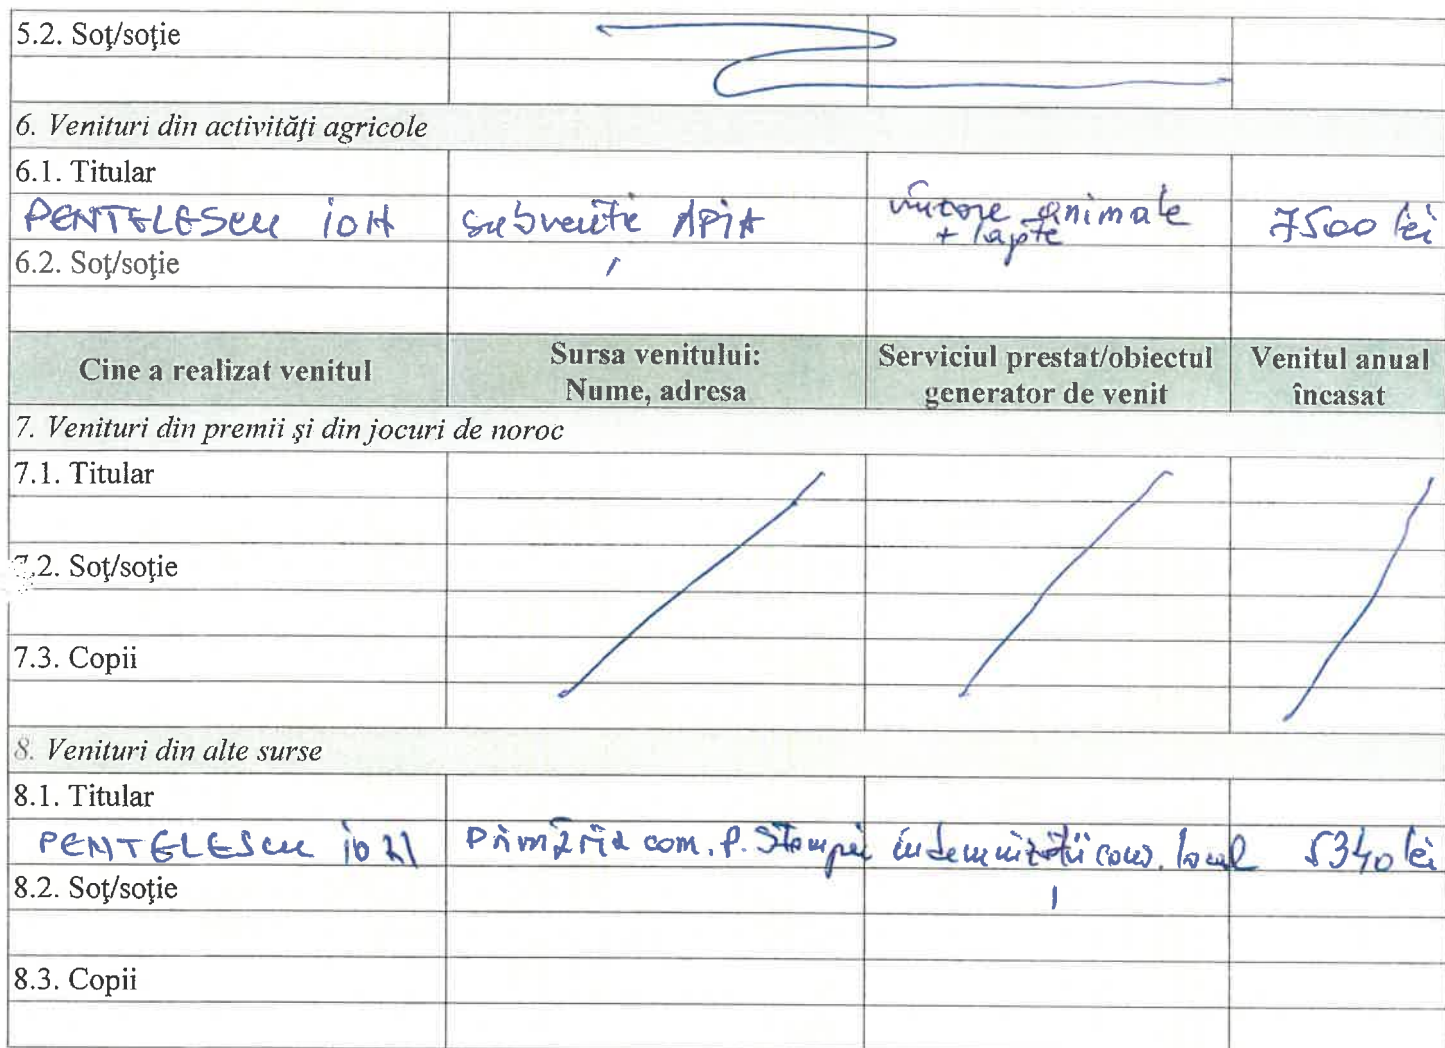 5.2. Soţ/soţie
6. Venituri din activităţi agricole
6.1. Titular
PENTELESCU ION subvenţie APIA animale 7500 lei
+ lapte
6.2. Soţ/soţie
Cine a realizat venitul Sursa venitului: Nume, adresa Serviciul prestat/obiectul generator de venit Venitul anual încasat
7. Venituri din premii şi din jocuri de noroc
7.1. Titular
7.2. Soţ/soţie
7.3. Copii
8. Venituri din alte surse
8.1. Titular
PENTELESCU ION Primăria com. P. Stampei indemnizaţii cons. local 5340 lei
8.2. Soţ/soţie
8.3. Copii